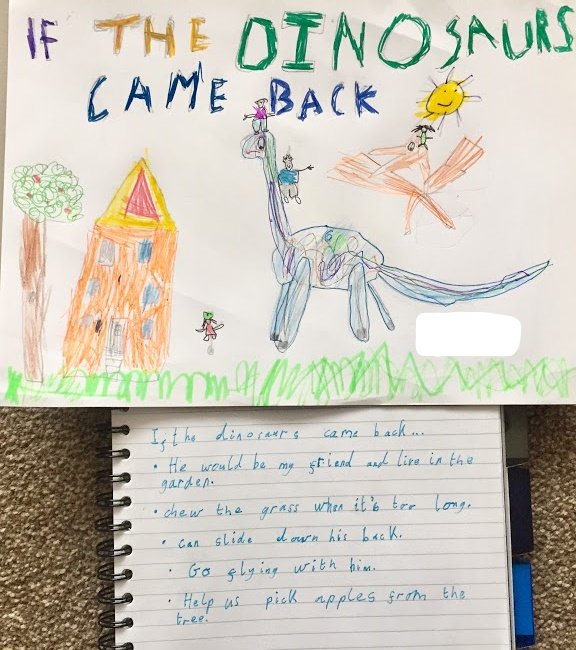 IF THE DINOSAURS
CAME BACK
If the dinosaurs came back...
• He would be my friend and live in the
garden.
• chew the grass when it's too long.
• can slide down his back.
• Go flying with him.
• Help us pick apples from the
tree.